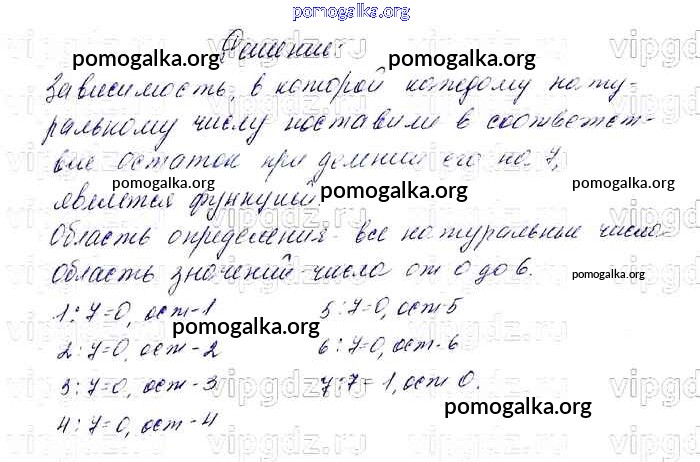 pomogalka.org
Решение:
Зависимость, в которой каждому нату-
ральному числу поставили в соответст-
вие остаток при делении его на 7,
является функцией.
Область определения - все натуральные числа
область значений - числа от 0 до 6.
1:7=0, ост-1
2:7=0, ост-2
3:7=0, ост-3
4:7=0, ост-4
5:7=0, ост-5
6:7=0, ост-6
7:7=1, ост 0.
pomogalka.org
pomogalka.org
pomogalka.org
pomogalka.org
pomogalka.org
pomogalka.org
pomogalka.org
pomogalka.org
vipgdz.ru